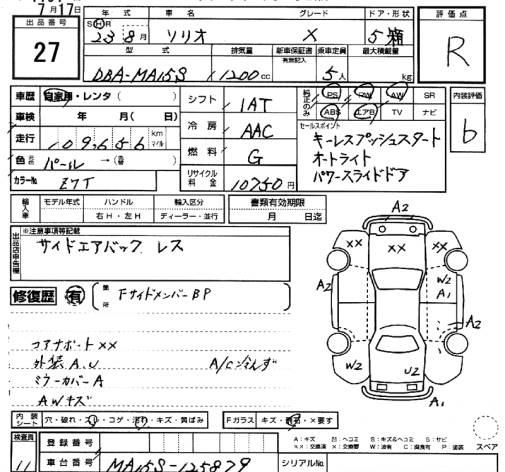 7月17日
出品番号
27
年式 車名 グレード ドア・形状
SH 23年8月 ソリオ X 5 箱
型式 排気量 新車保証書 乗車定員 最大積載量
有無記入
DBA-MA15S 1200cc 5人 kg
評価点
R
車歴 自家用・レンタ( )
車検 年 月( 日)
走行 109,656 km マイル
色 パール →( )
カラーNo. Z7T
シフト IAT
冷房 AAC
燃料 G
リサイクル料金 10750円
純正のみ PS PW AW SR
ABS エアB TV ナビ
セールスポイント
キーレスプッシュスタート
オートライト
パワースライドドア
内装評価
b
輸入車 モデル年式 ハンドル 輸入区分 書類有効期限
右H・左H ディーラー・並行 月 日迄
出品店申告欄
※注意事項等記載
サイドエアバック レス
修復歴 有 箇所 FサイドメンバーBP
コアサポートXX
外装A.U A/C冷えず
ミラーカバーA
AWキズ
A2
XX XX XX
A2 W2 A1
A2
W2 U2 W2
A1
内装シート 穴・破れ・スレ・コゲ・汚れ・キズ・黄ばみ
Fガラス キズ・×要す
検査員 11
登録番号
車台番号 MA15S-125879
シリアルNo.
A:キズ U:ヘコミ B:キズ&ヘコミ S:サビ
XX:交換済 X:交換要 W:波有 C:腐食可 P:塗装
スペア